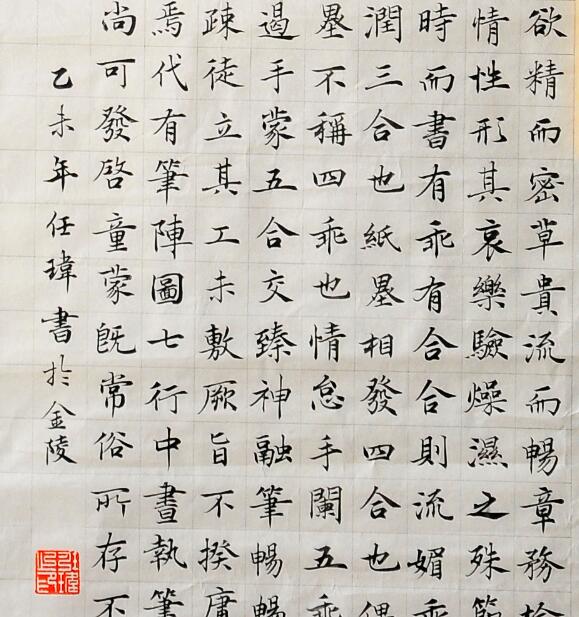 欲精而密草貴流而暢章務檢
情性形其哀樂驗燥濕之殊節
時而書有乖有合合則流媚乖
潤三合也紙墨相發四合也偶
墨不稱四乖也情怠手闌五乖
遏手蒙五合交臻神融筆暢暢
疎徒立其工未敷厥旨不揆庸
焉代有筆陣圖七行中畫執筆
尚可發啓童蒙既常俗所存不
乙未年任瑋書於金陵